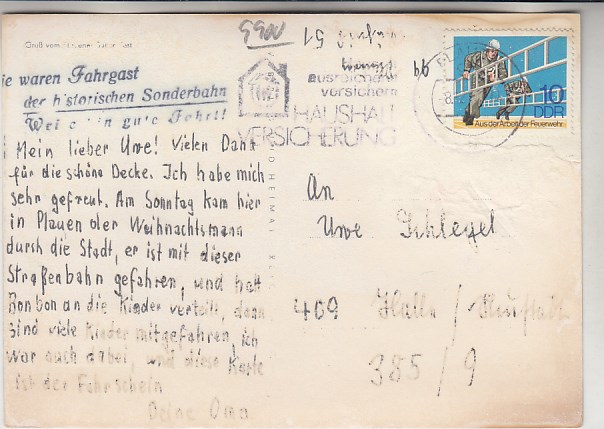 Gruß vom
Sie waren Fahrgast
der historischen Sonderbahn
gute Fahrt!
Mein lieber Uwe! Vielen Dank
für die schöne Decke. Ich habe mich
sehr gefreut. Am Sonntag kam hier
in Plauen der Weihnachtsmann
durch die Stadt, er ist mit dieser
Straßenbahn gefahren, und hatt
Bonbon an die Kinder verteilt, dann
sind viele Kinder mitgefahren, ich
war auch dabei, und diese Karte
ist der Fahrschein
Deine Oma
ausreichend
versichern
HAUSHALT
VERSICHERUNG
10
DDR
Aus der Arbeit der Feuerwehr
An
Uwe Schlegel
409 Halle / Neustadt
385/9